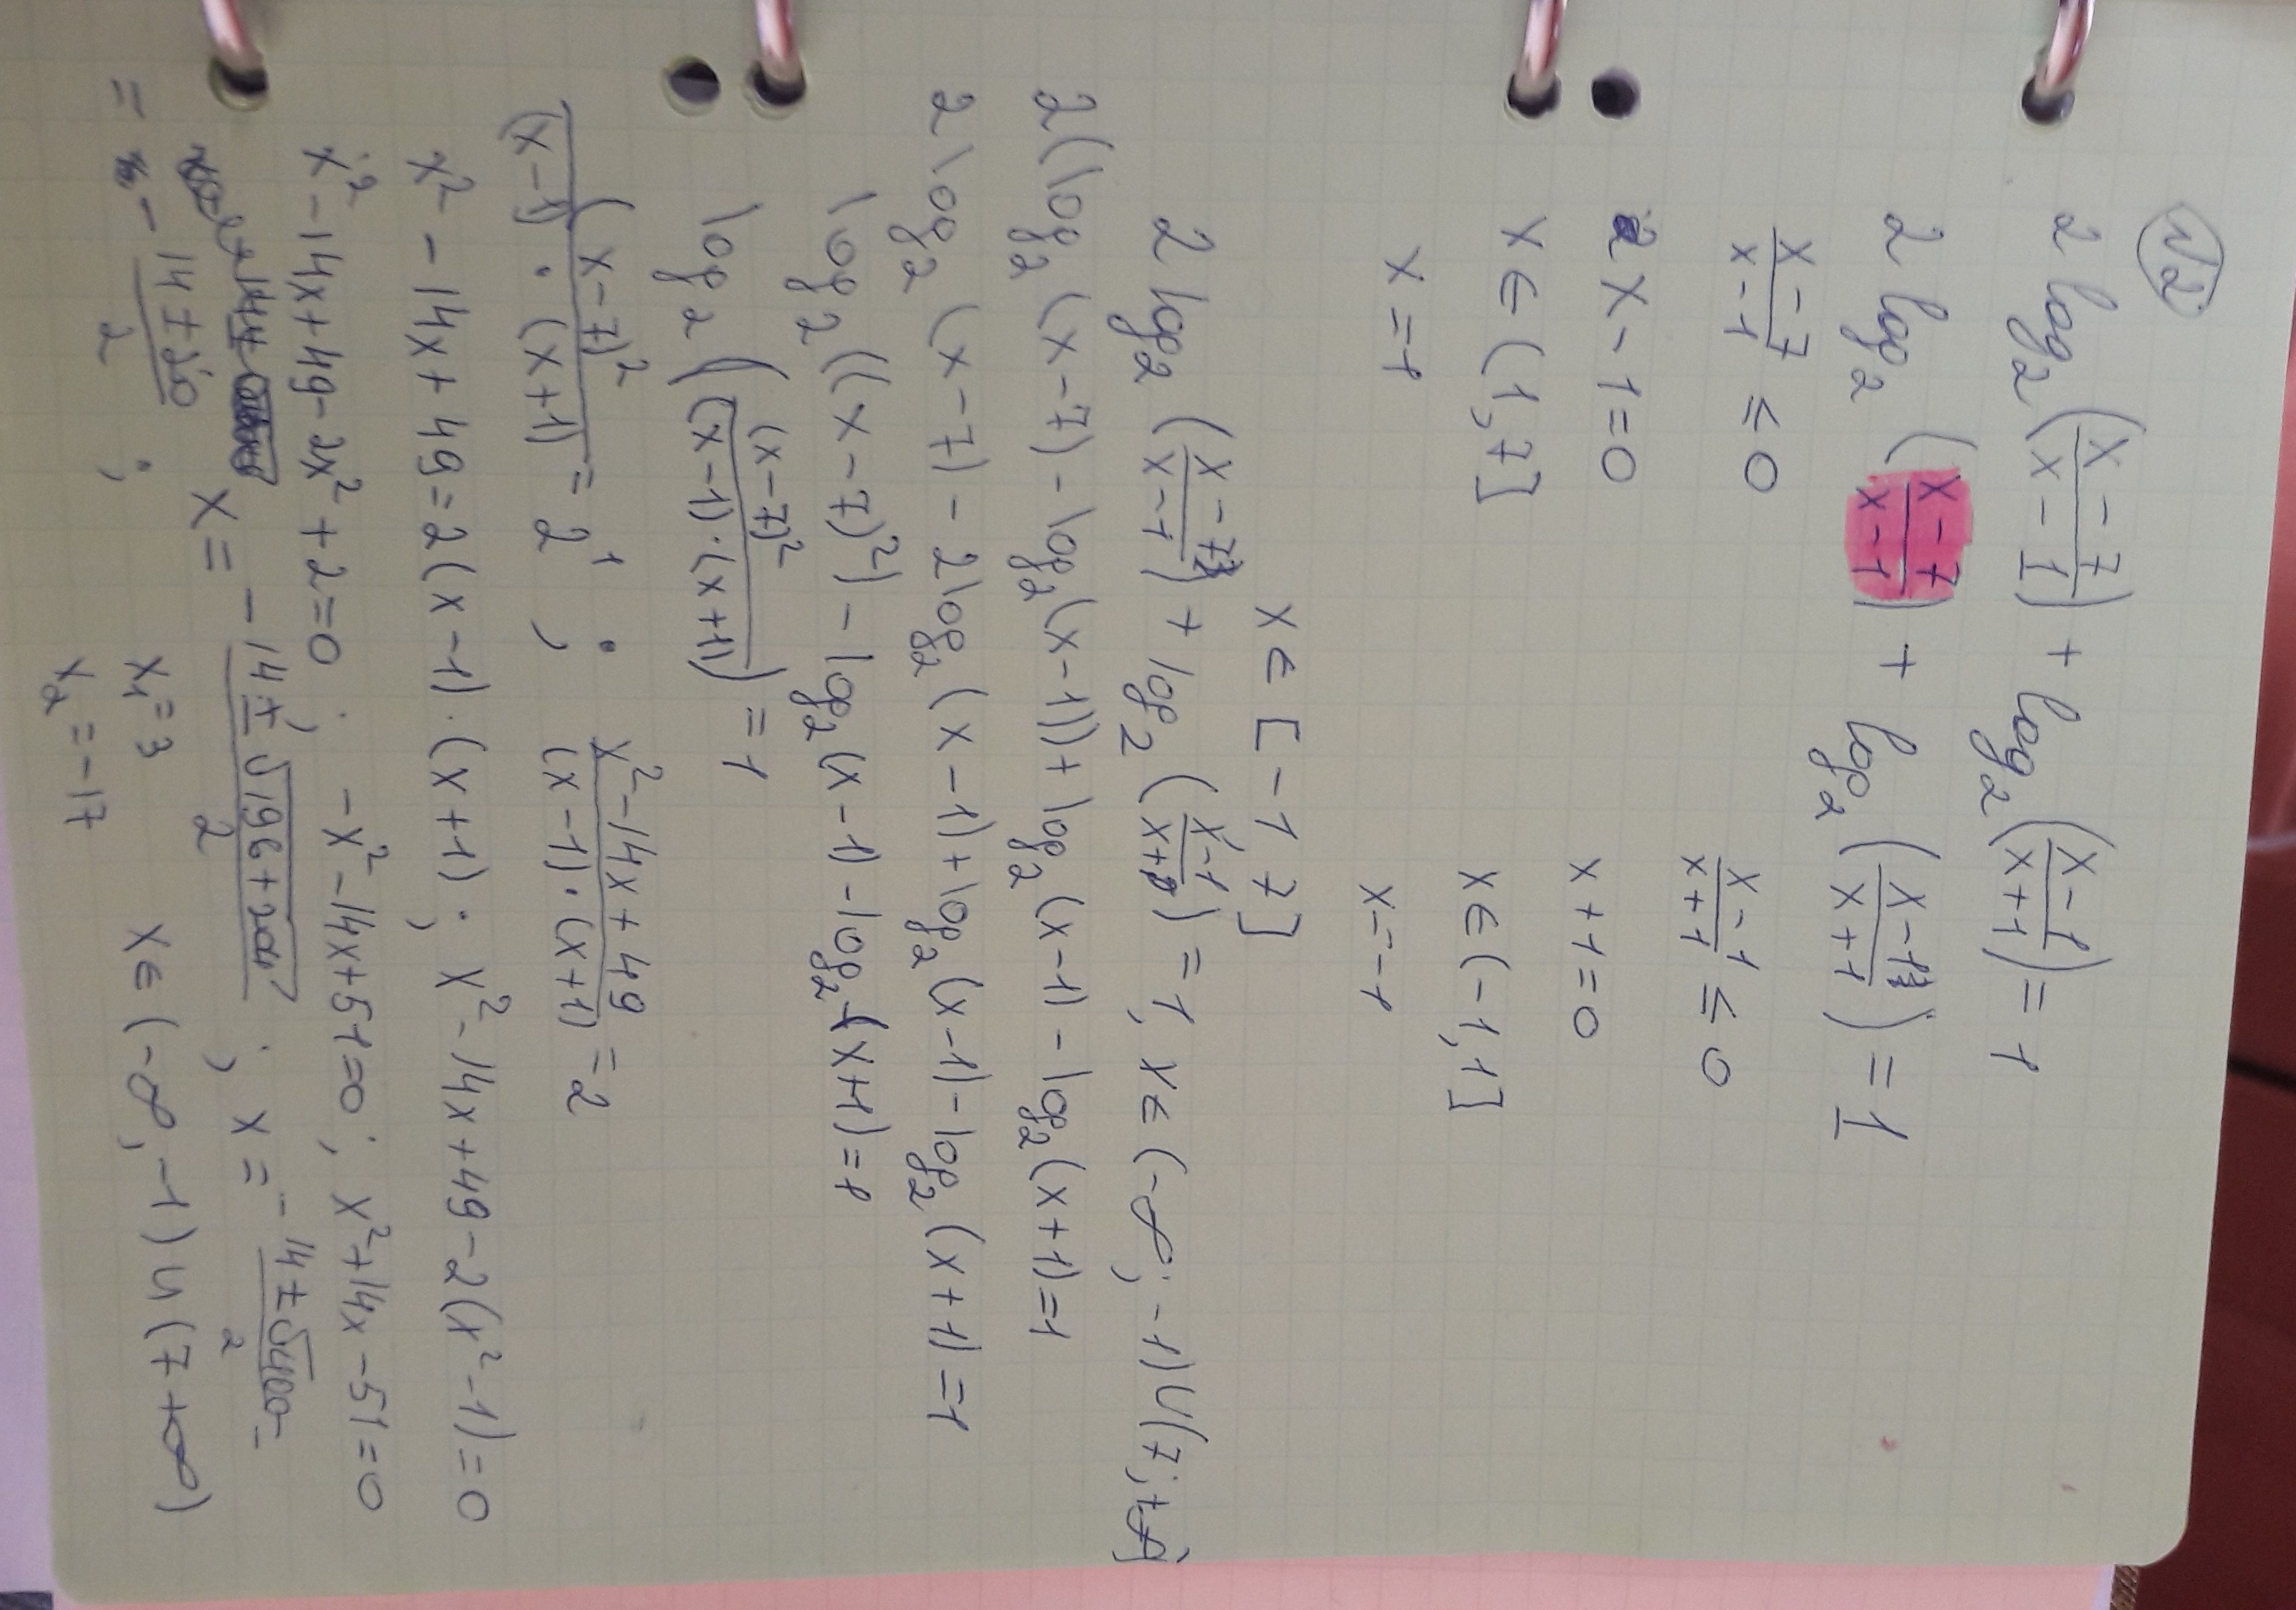 №2
2 log₂((x-7)/(x-1)) + log₂((x-1)/(x+1)) = 1
2 log₂((x-7)/(x-1)) + log₂((x-1)/(x+1)) = 1
(x-7)/(x-1) ≤ 0 (x-1)/(x+1) ≤ 0
x-1=0 x+1=0
x∈(1,7] x∈(-1,1]
x=1 x=-1
x∈[-1 7]
2 log₂((x-7)/(x-1)) + log₂((x-1)/(x+1)) = 1, x∈(-∞; -1)∪(7;+∞)
2(log₂(x-7)-log₂(x-1))+log₂(x-1)-log₂(x+1)=1
2log₂(x-7)-2log₂(x-1)+log₂(x-1)-log₂(x+1)=1
log₂((x-7)²)-log₂(x-1)-log₂(x+1)=1
log₂((x-7)²/((x-1)·(x+1)))=1
(x-7)²/((x-1)·(x+1)) = 2¹; (x²-14x+49)/((x-1)·(x+1)) = 2
x²-14x+49=2(x-1)·(x+1); x²-14x+49-2(x²-1)=0
x²-14x+49-2x²+2=0; -x²-14x+51=0; x²+14x-51=0
x = (-14±√(196+204))/2; x = (-14±√400)/2 =
= (-14±20)/2; x₁=3 x∈(-∞,-1)∪(7 +∞)
x₂=-17